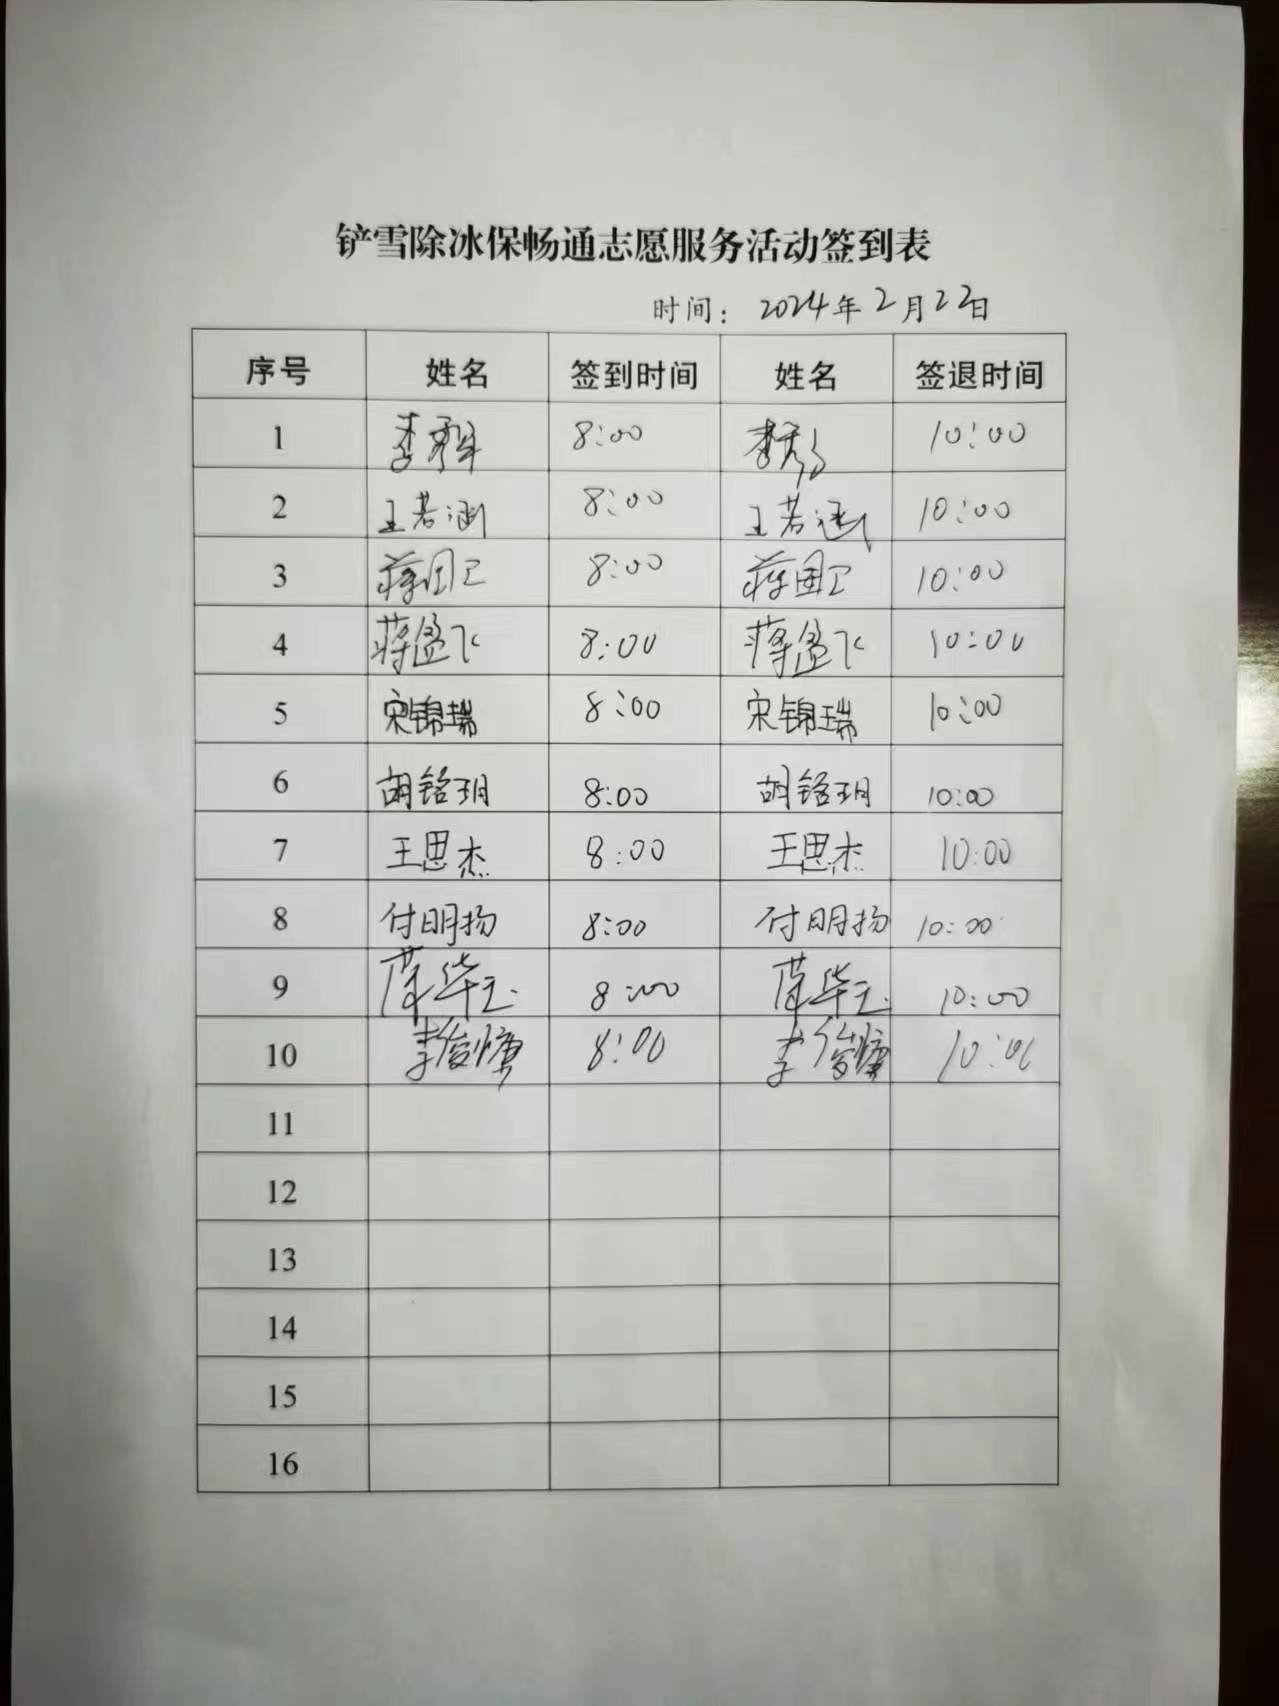 铲雪除冰保畅通志愿服务活动签到表
时间：2024年2月22日
序号 姓名 签到时间 姓名 签退时间
1 李 8:00 李 10:00
2 王若涵 8:00 王若涵 10:00
3 蒋国卫 8:00 蒋国卫 10:00
4 蒋盈飞 8:00 蒋盈飞 10:00
5 宋锦瑞 8:00 宋锦瑞 10:00
6 胡铭玥 8:00 胡铭玥 10:00
7 王思杰 8:00 王思杰 10:00
8 付明扬 8:00 付明扬 10:00
9 华玉 8:00 华玉 10:00
10 李俊 8:00 李俊 10:00
11
12
13
14
15
16